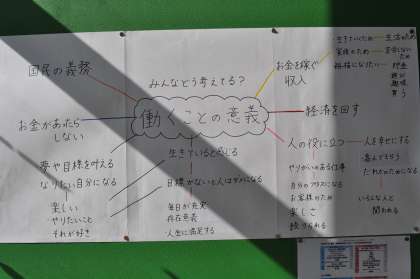 みんなどう考えてる?
働くことの意義
国民の義務
お金があったら
しない
夢や目標を叶える
なりたい自分になる
楽しい
・やりたいこと
それが好き
生きていると感じる
目標がないと人はダメになる
毎日が充実
存在意義
・人生に満足する
お金を稼ぐ
収入
・生きていくため
生活のため
家族のため
裕福になりたい
貯金
遊び
趣味
買う
経済を回す
人の役に立つ
人を幸せにする
喜んでもらう
だれかのためになる
いろんな人と
関われる
やりがいのある仕事
自分のプラスになる
お客様のため
楽しさ